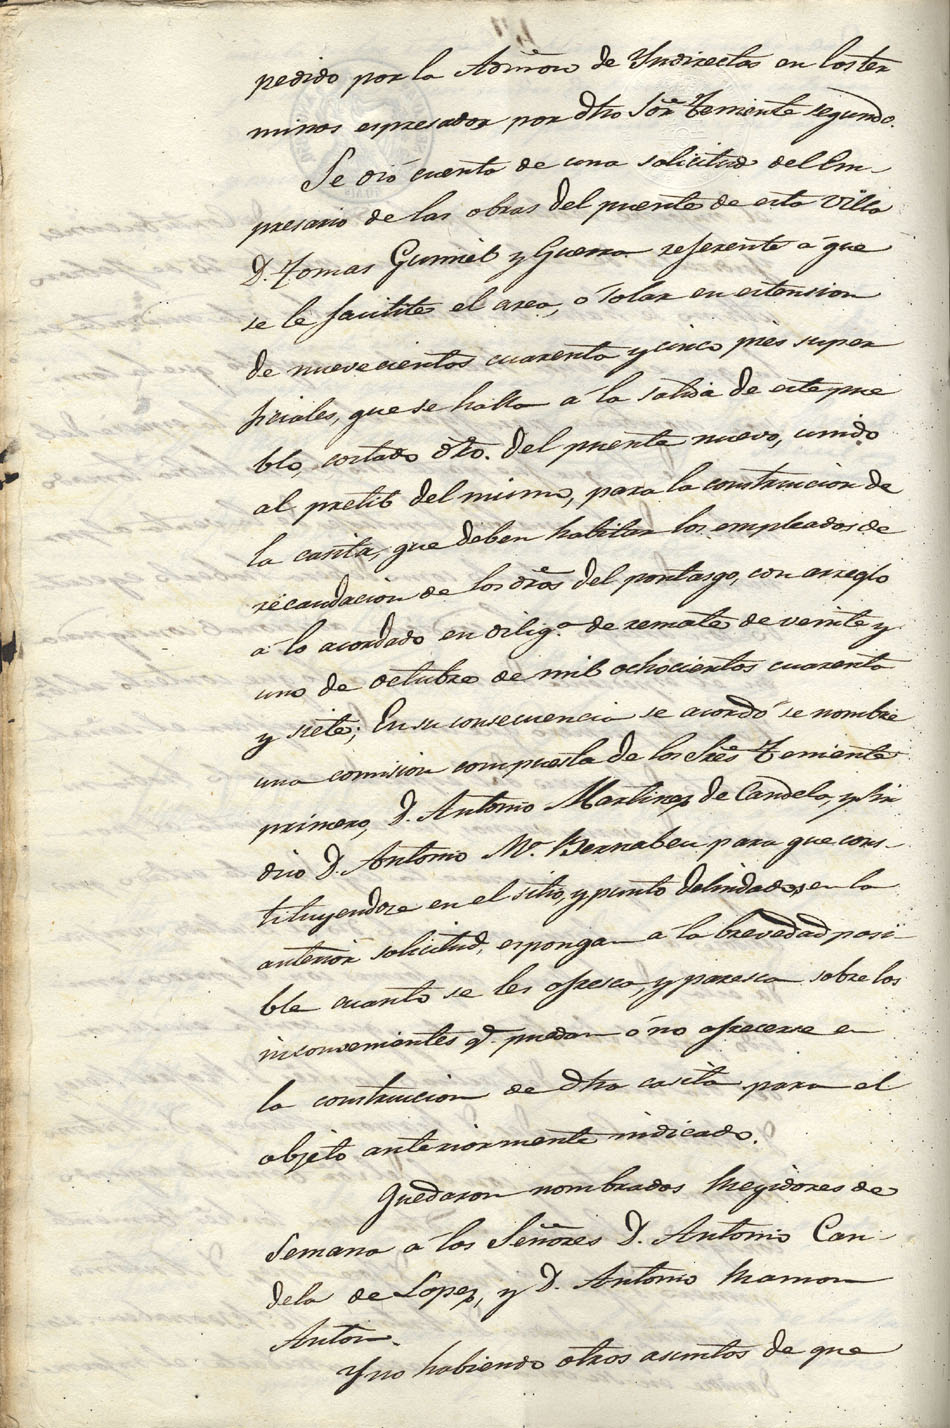 pedido por la Admon de Yndirectas en los ter
minos espresados por dho Sor Teniente segundo.
Se dió cuenta de una solicitud del Em-
presario de las obras del puente de esta Villa
D. Tomas Gumiel y Guerra referente a que
se le facilite el area, ó solar en estension
de nuevecientos cuarenta y cinco pies super
ficiales, que se halla á la salida de este pue
blo, costado dro. del puente nuevo, unido
al pretil del mismo, para la construccion de
la casita, que deben habitar los empleados de
recaudacion de los dros del pontasgo, con arreglo
a lo acordado en dilig.a de remate de veinte y
uno de octubre de mil ochocientos cuarenta
y siete; En su consecuencia se acordó se nombre
una comision compuesta de los Sres Teniente
primero, D. Antonio Martinez de Candela, y Sin
dico D. Antonio M.a Bernabeu para que cons-
tituyendose en el sitio, y punto delindados en la
anterior solicitud, espongan a la brevedad posi-
ble cuanto se les ofresca, y paresca sobre los
inconvenientes q.e puedan ó no ofrecerse en
la construccion de dha casita para el
objeto anteriormente indicado.
Quedaron nombrados Regidores de
Semana a los Señores D. Antonio Can-
dela de Lopez, y D. Antonio Mamon
Anton.
Y no habiendo otros asuntos de que